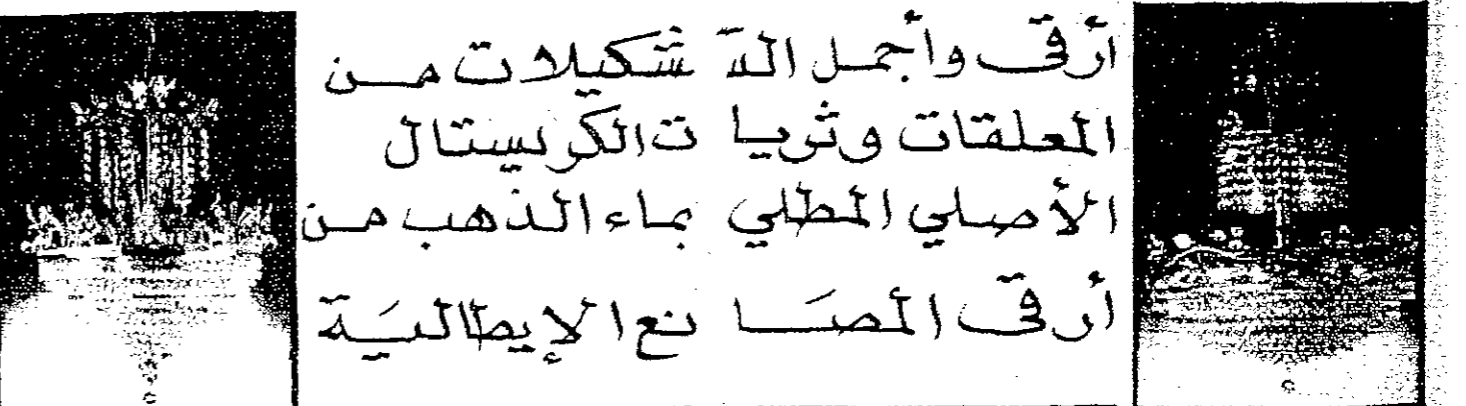 أرقى وأجمل التشكيلات من
المعلقات وثريات الكريستال
الأصلي المطلي بماء الذهب من
أرقى المصَانع الإيطاليَة